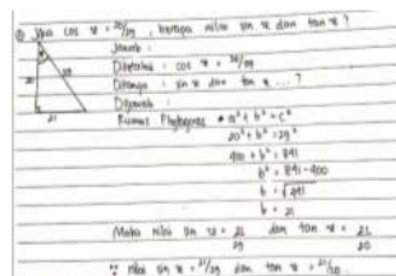 Jika cos α = 20/29, berapa nilai sin α dan tan α?
Jawab :
Diketahui : cos α = 20/29
Ditanya : sin α dan tan α ...?
Dijawab :
Rumus Phytagoras • a² + b² = c²
20² + b² = 29²
400 + b² = 841
b² = 841 - 400
b = √441
b = 21
20
29
21
Maka nilai sin α = 21/29 dan tan α = 21/20
∴ nilai sin α = 21/29 dan tan α = 21/20.